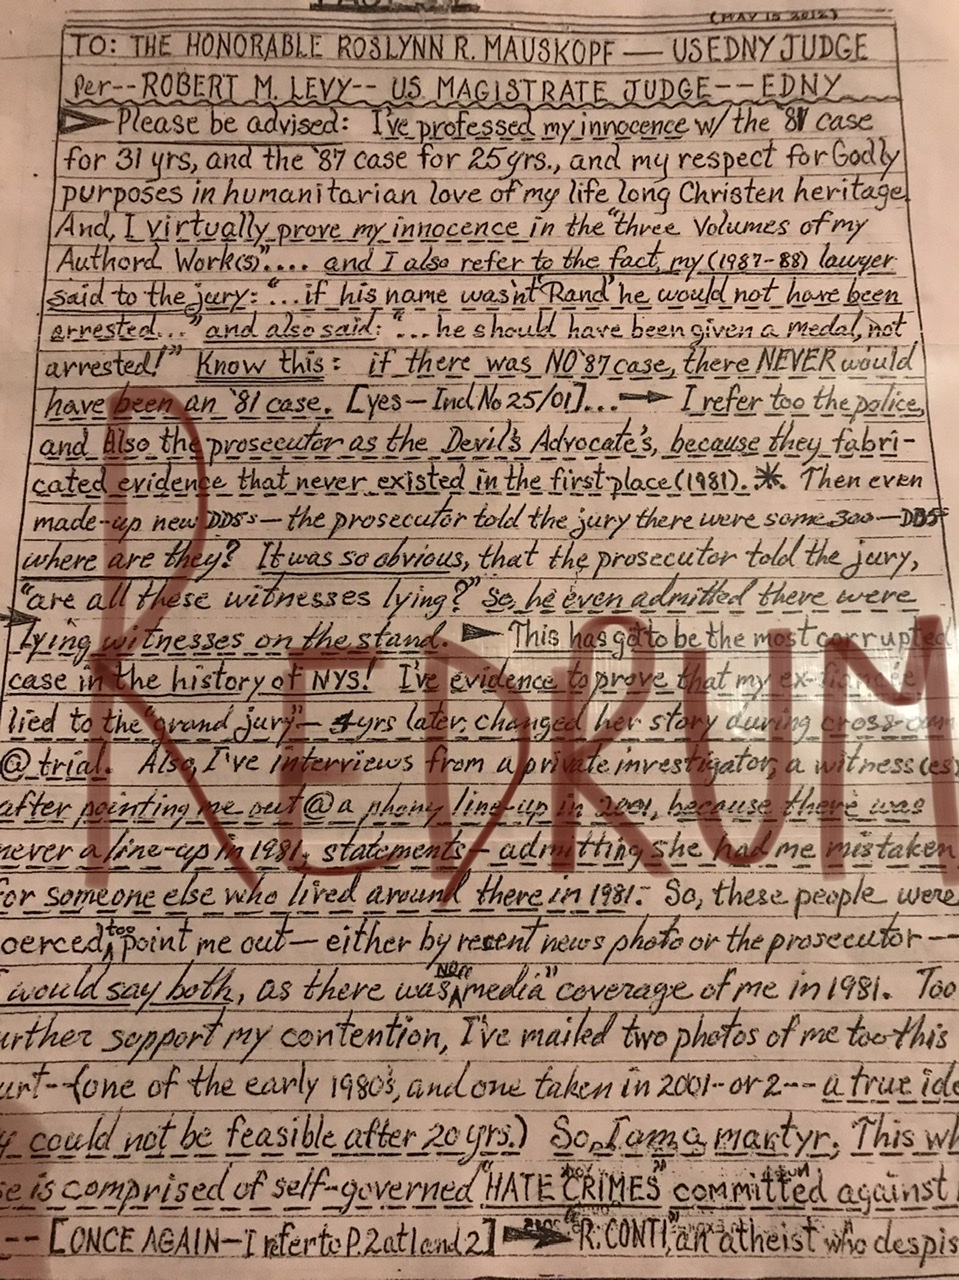 (MAY 15 2012)
TO: THE HONORABLE ROSLYNN R. MAUSKOPF — USEDNY JUDGE
Per-- ROBERT M. LEVY-- US MAGISTRATE JUDGE-- EDNY
Please be advised: I've professed my innocence w/ the '81 case
for 31 yrs, and the '87 case for 25 yrs., and my respect for Godly
purposes in humanitarian love of my life long Christen heritage.
And, I virtually prove my innocence in the "three Volumes of my
Authord Work(s)".... and I also refer to the fact, my (1987-88) lawyer
said to the jury: "...if his name wasn't 'Rand' he would not have been
arrested..." and also said: "...he should have been given a medal, not
arrested!" Know this: if there was NO '87 case, there NEVER would
have been an '81 case. [yes — Ind No 25/01]... → I refer too the police,
and Also the prosecutor as the Devil's Advocate's, because they fabri-
cated evidence that never existed in the first place (1981). *. Then even
made-up new DD5s — the prosecutor told the jury there were some 300 — DD5s
where are they? It was so obvious, that the prosecutor told the jury,
"are all these witnesses lying?" So, he even admitted there were
lying witnesses on the stand. ► This has got to be the most corrupted
case in the history of NYS! I've evidence to prove that my ex-fiancée
lied to the "grand jury" — yrs later, changed her story during cross-exam
@ trial. Also, I've interviews from a private investigator, a witness(es)
after pointing me out @ a phony line-up in 2001, because there was
never a line-up in 1981, statements — admitting she had me mistaken
for someone else who lived around there in 1981. So, these people were
oerced too point me out — either by recent news photo or the prosecutor --
I would say both, as there was NO "media" coverage of me in 1981. Too
urther support my contention, I've mailed two photos of me too this
urt-- (one of the early 1980's, and one taken in 2001-or 2-- a true ide
y could not be feasible after 20 yrs.) So, I am a martyr. This wh
se is comprised of self-governed "HATE CRIMES" committed against
-- [ONCE AGAIN — I refer to P.2 at 1 and 2] → "R. CONTI," an atheist who despis
REDRUM